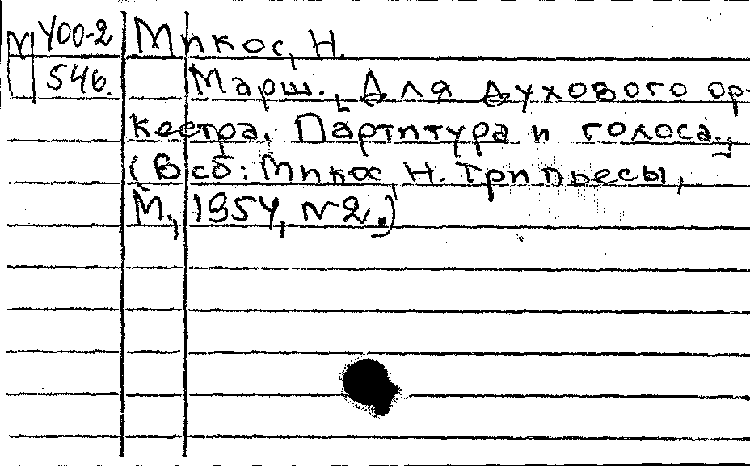 М У00-2 Микос, Н.
546. Марш. [Для духового ор-
кестра. Партитура и голоса.]
(В сб: Микос Н. Три пьесы,
М., 1954, №2.)